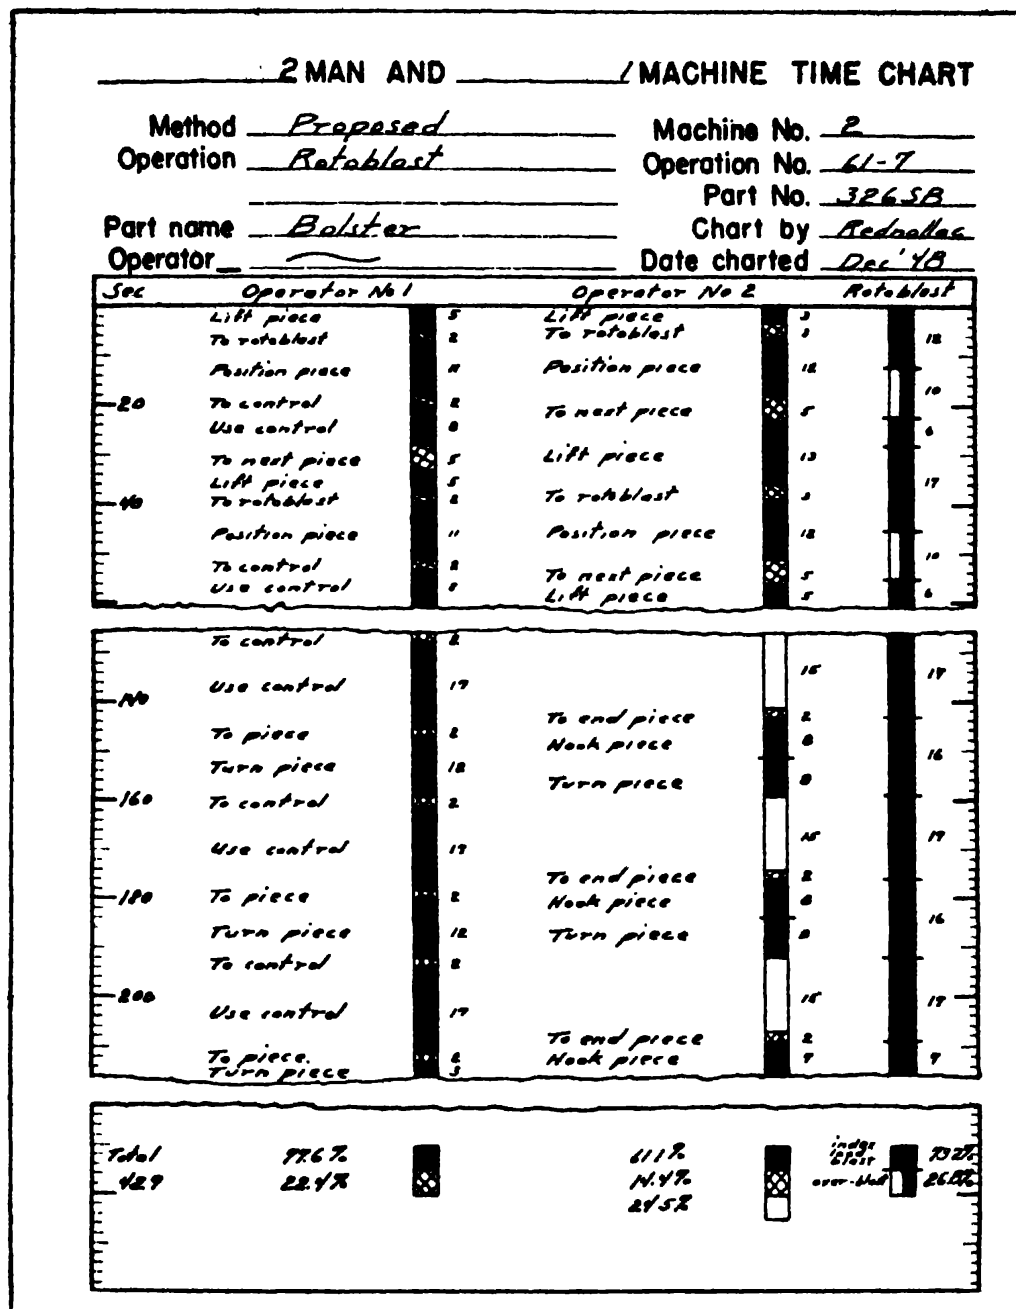 2 MAN AND 1 MACHINE TIME CHART
Method Proposed Machine No. 2
Operation Rotoblast Operation No. 61-7
Part No. 326SB
Part name Bolster Chart by
Operator Date charted Dec '48
Sec Operator No 1 Operator No 2 Rotoblast
Lift piece 5 Lift piece 3
To rotoblast 2 To rotoblast 3 12
Position piece 11 Position piece 12
10
20 To control 2 To next piece 5
Use control 8 6
To next piece 5 Lift piece 13
Lift piece 5 17
40 To rotoblast 2 To rotoblast 3
Position piece 11 Position piece 12
10
To control 2 To next piece 5
Use control 8 Lift piece 5 6
To control 2
15 17
140 Use control 17
To end piece 2
To piece 2 Hook piece 8 16
Turn piece 12 Turn piece 8
160 To control 2
Use control 17 15 17
To end piece 2
180 To piece 2 Hook piece 8
16
Turn piece 12 Turn piece 8
To control 2
200 15 17
Use control 17
To end piece 2
To piece 2 Hook piece 7 7
Turn piece 3
Total 77.6% 61.1% index load blast 73.2%
429 22.4% 14.4% over-blast 26.8%
24.5%